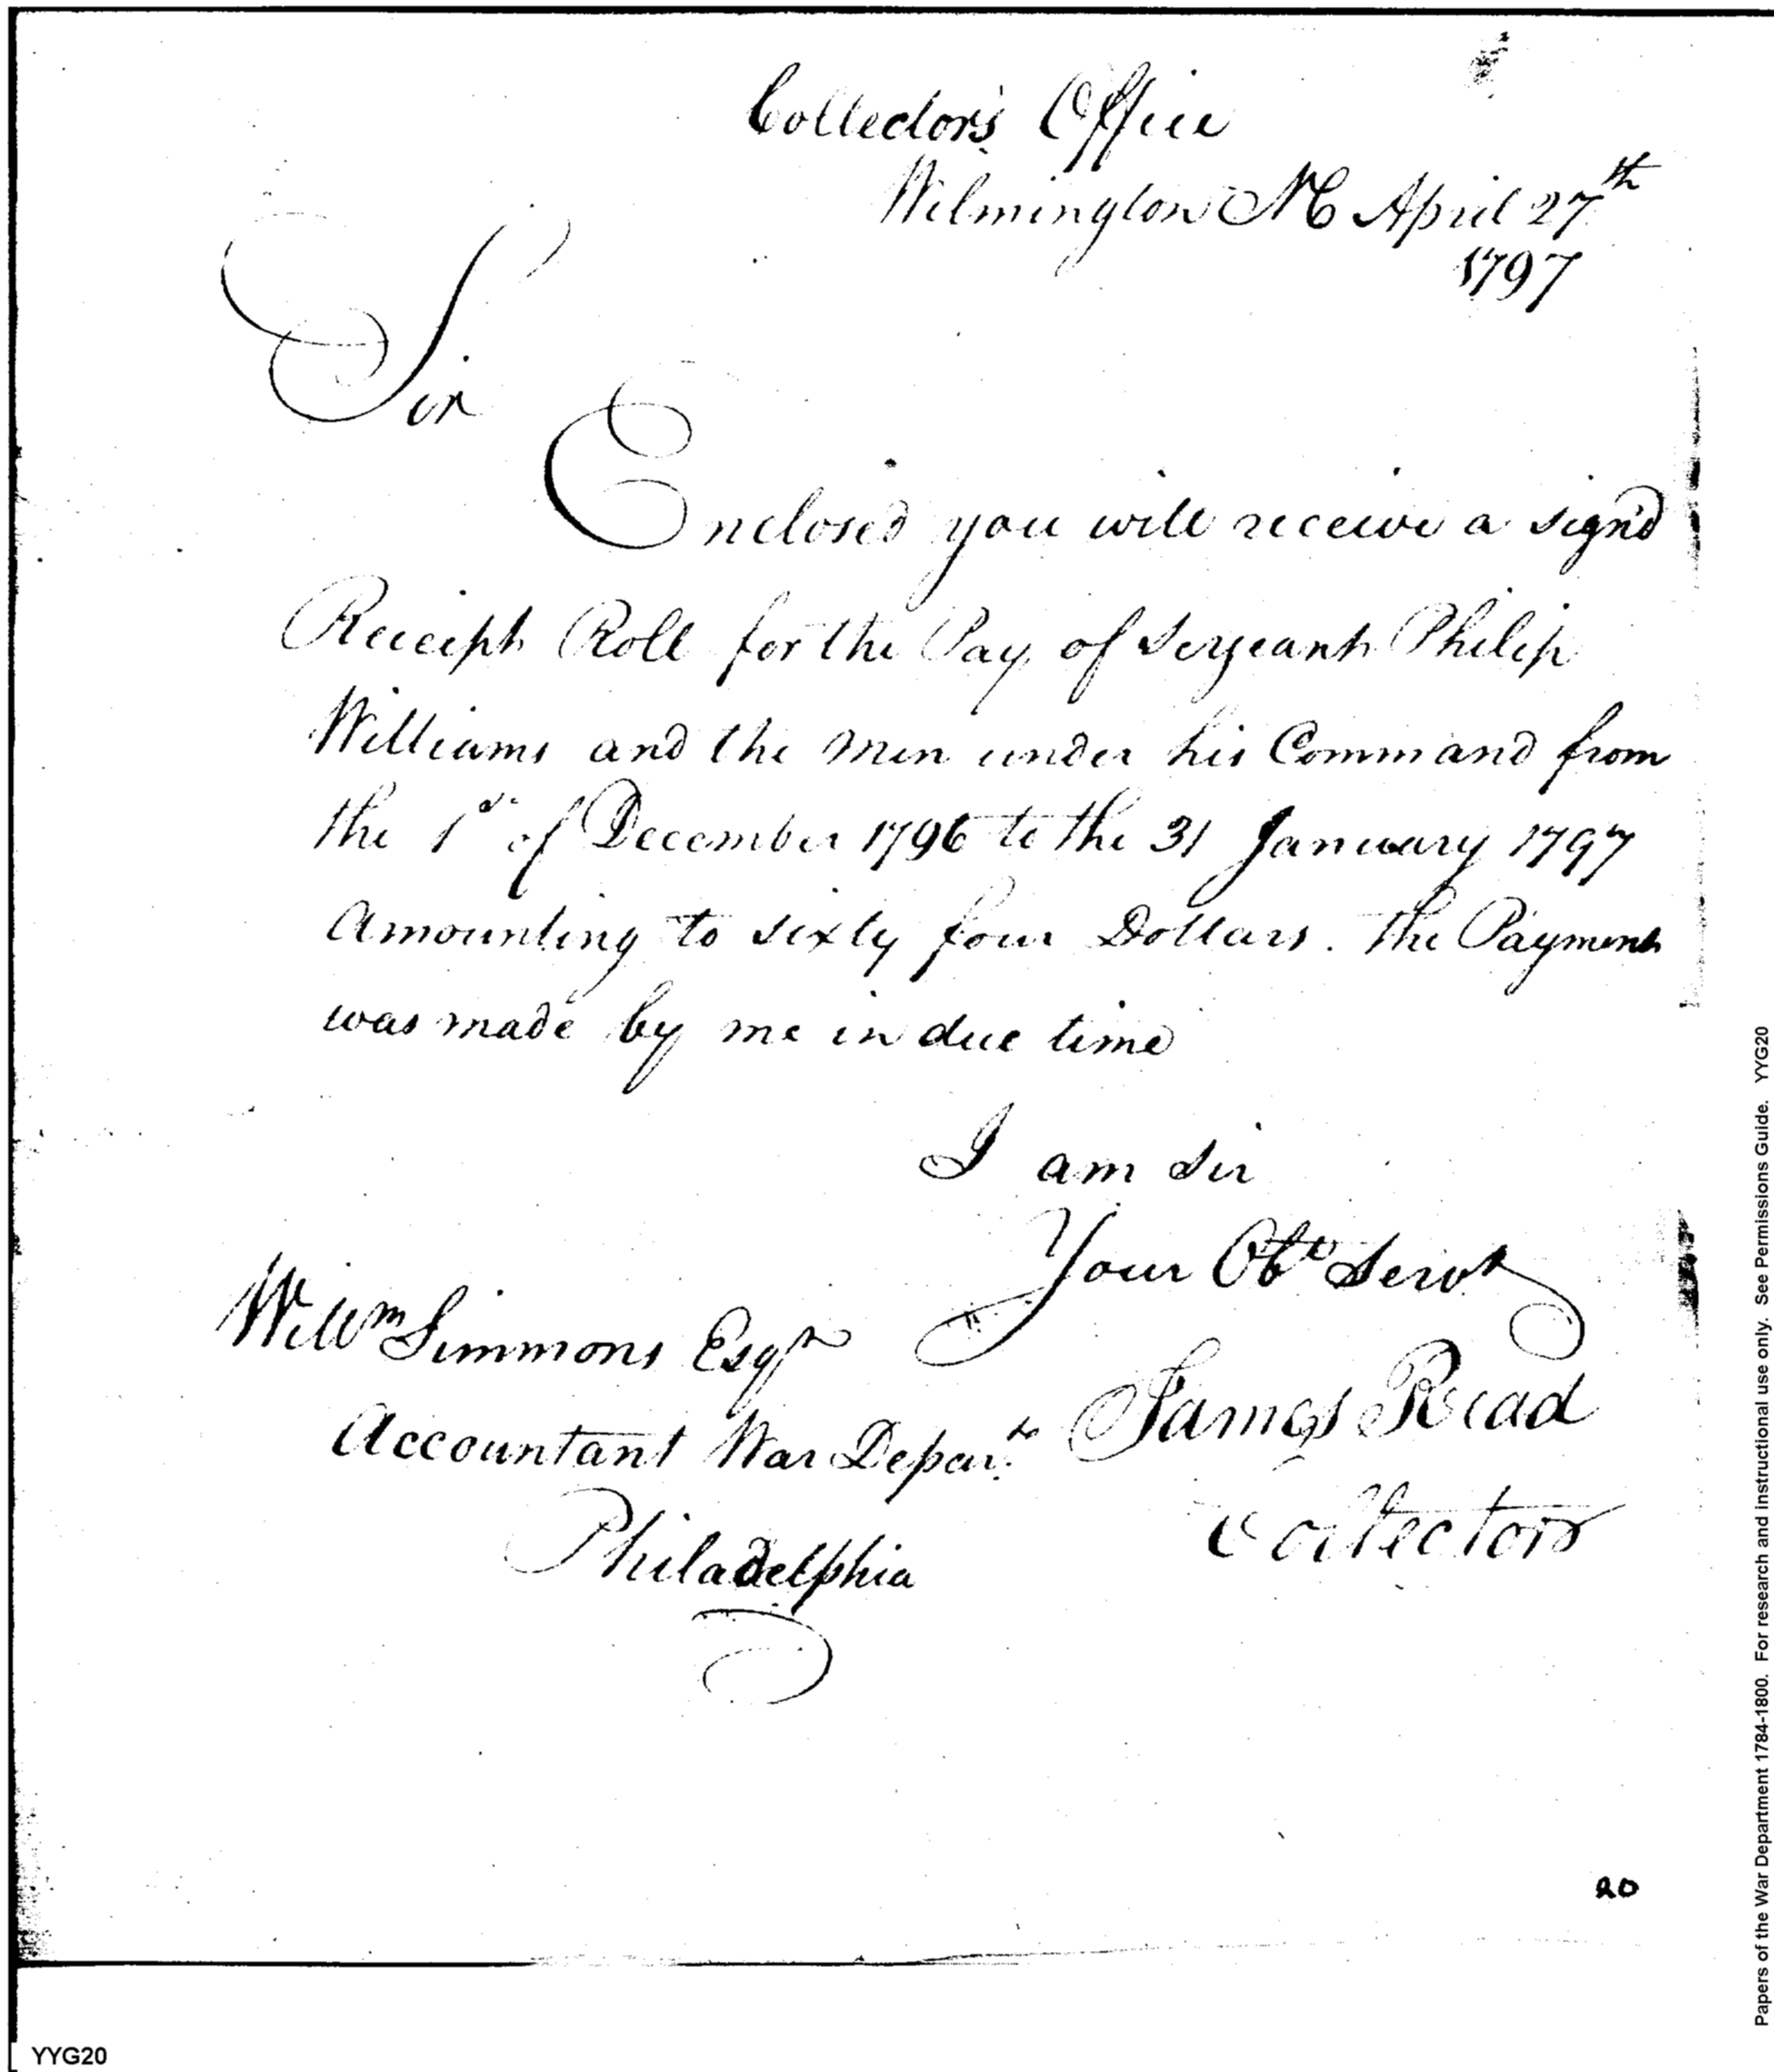 Collector's Office
Wilmington NC April 27th
1797
Sir
Enclosed you will receive a sign'd
Receipt Roll for the Pay of Sergeant Philip
Williams and the men under his Command from
the 1st of December 1796 to the 31 January 1797
Amounting to sixty four Dollars. the Payment
was made by me in due time
I am Sir
Your Obt Servt
Willm Simmons Esqr
James Read
Accountant War Depart.
Collector
Philadelphia
20
YYG20
Papers of the War Department 1784-1800. For research and instructional use only. See Permissions Guide. YYG20